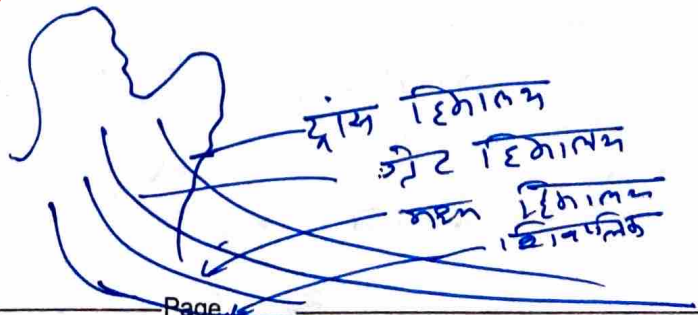 ट्रांस हिमालय
ग्रेट हिमालय
मध्य हिमालय
शिवालिक
Page